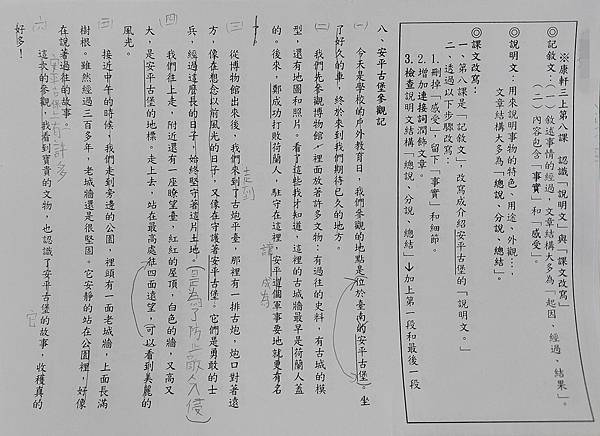 ※康軒三上第八課 認識「說明文」與「課文改寫」
◎記敘文：(一)敘述事情的經過，文章結構大多為「起因、經過、結果」。
(二)內容包含「事實」和「感受」。
◎說明文：用來說明事物的特色、用途、外觀…，
文章結構大多為「總說、分說、總結」。
◎課文改寫
一、第八課是「記敘文」，改寫成介紹安平古堡的「說明文。」
二、透過以下步驟改寫：
1.刪掉「感受」，留下「事實」和細節。
2.增加連接詞潤飾文章。
3.檢查說明文結構「總說、分說、總結」↓加上第一段和最後一段
八、安平古堡參觀記
(一)今天是學校的戶外教育日，我們參觀的地點是位於臺南的安平古堡。坐
了好久的車，終於來到我們期待已久的地方。
(二)我們先參觀博物館，裡面放著許多文物：有過往的史料，有古城的模
型，還有地圖和照片。看了這些我才知道，這裡的古城牆最早是荷蘭人蓋
的。後來，鄭成功打敗荷蘭人，駐守在這裡，安平這個軍事要地就更有名
讓
成為
了。
走到
(三)從博物館出來後，我們來到了古炮平臺，那裡有一排古炮，炮口對著遠
方，像在想念以前風光的日子，又像在守護著安平古堡。它們是勇敢的士
兵，經過這麼長的日子，始終堅守著這片土地。
(是為了防止敵人入侵)
(四)我們往上走，附近還有一座瞭望臺，紅紅的屋頂，白色的牆，又高又
大，是安平古堡的地標。走上去，站在最高處往四面遠望，可以看到美麗的
風光。
(五)接近中午的時候，我們走到旁邊的公園，裡頭有一面老城牆，上面長滿
樹根。雖然經過三百多年，老城牆還是很堅固。它安靜的站在公園裡，好像
在說著過往的故事。
(六)這次的參觀，我看到寶貴的文物，也認識了安平古堡的故事，收穫真的
有許多
它
好多！